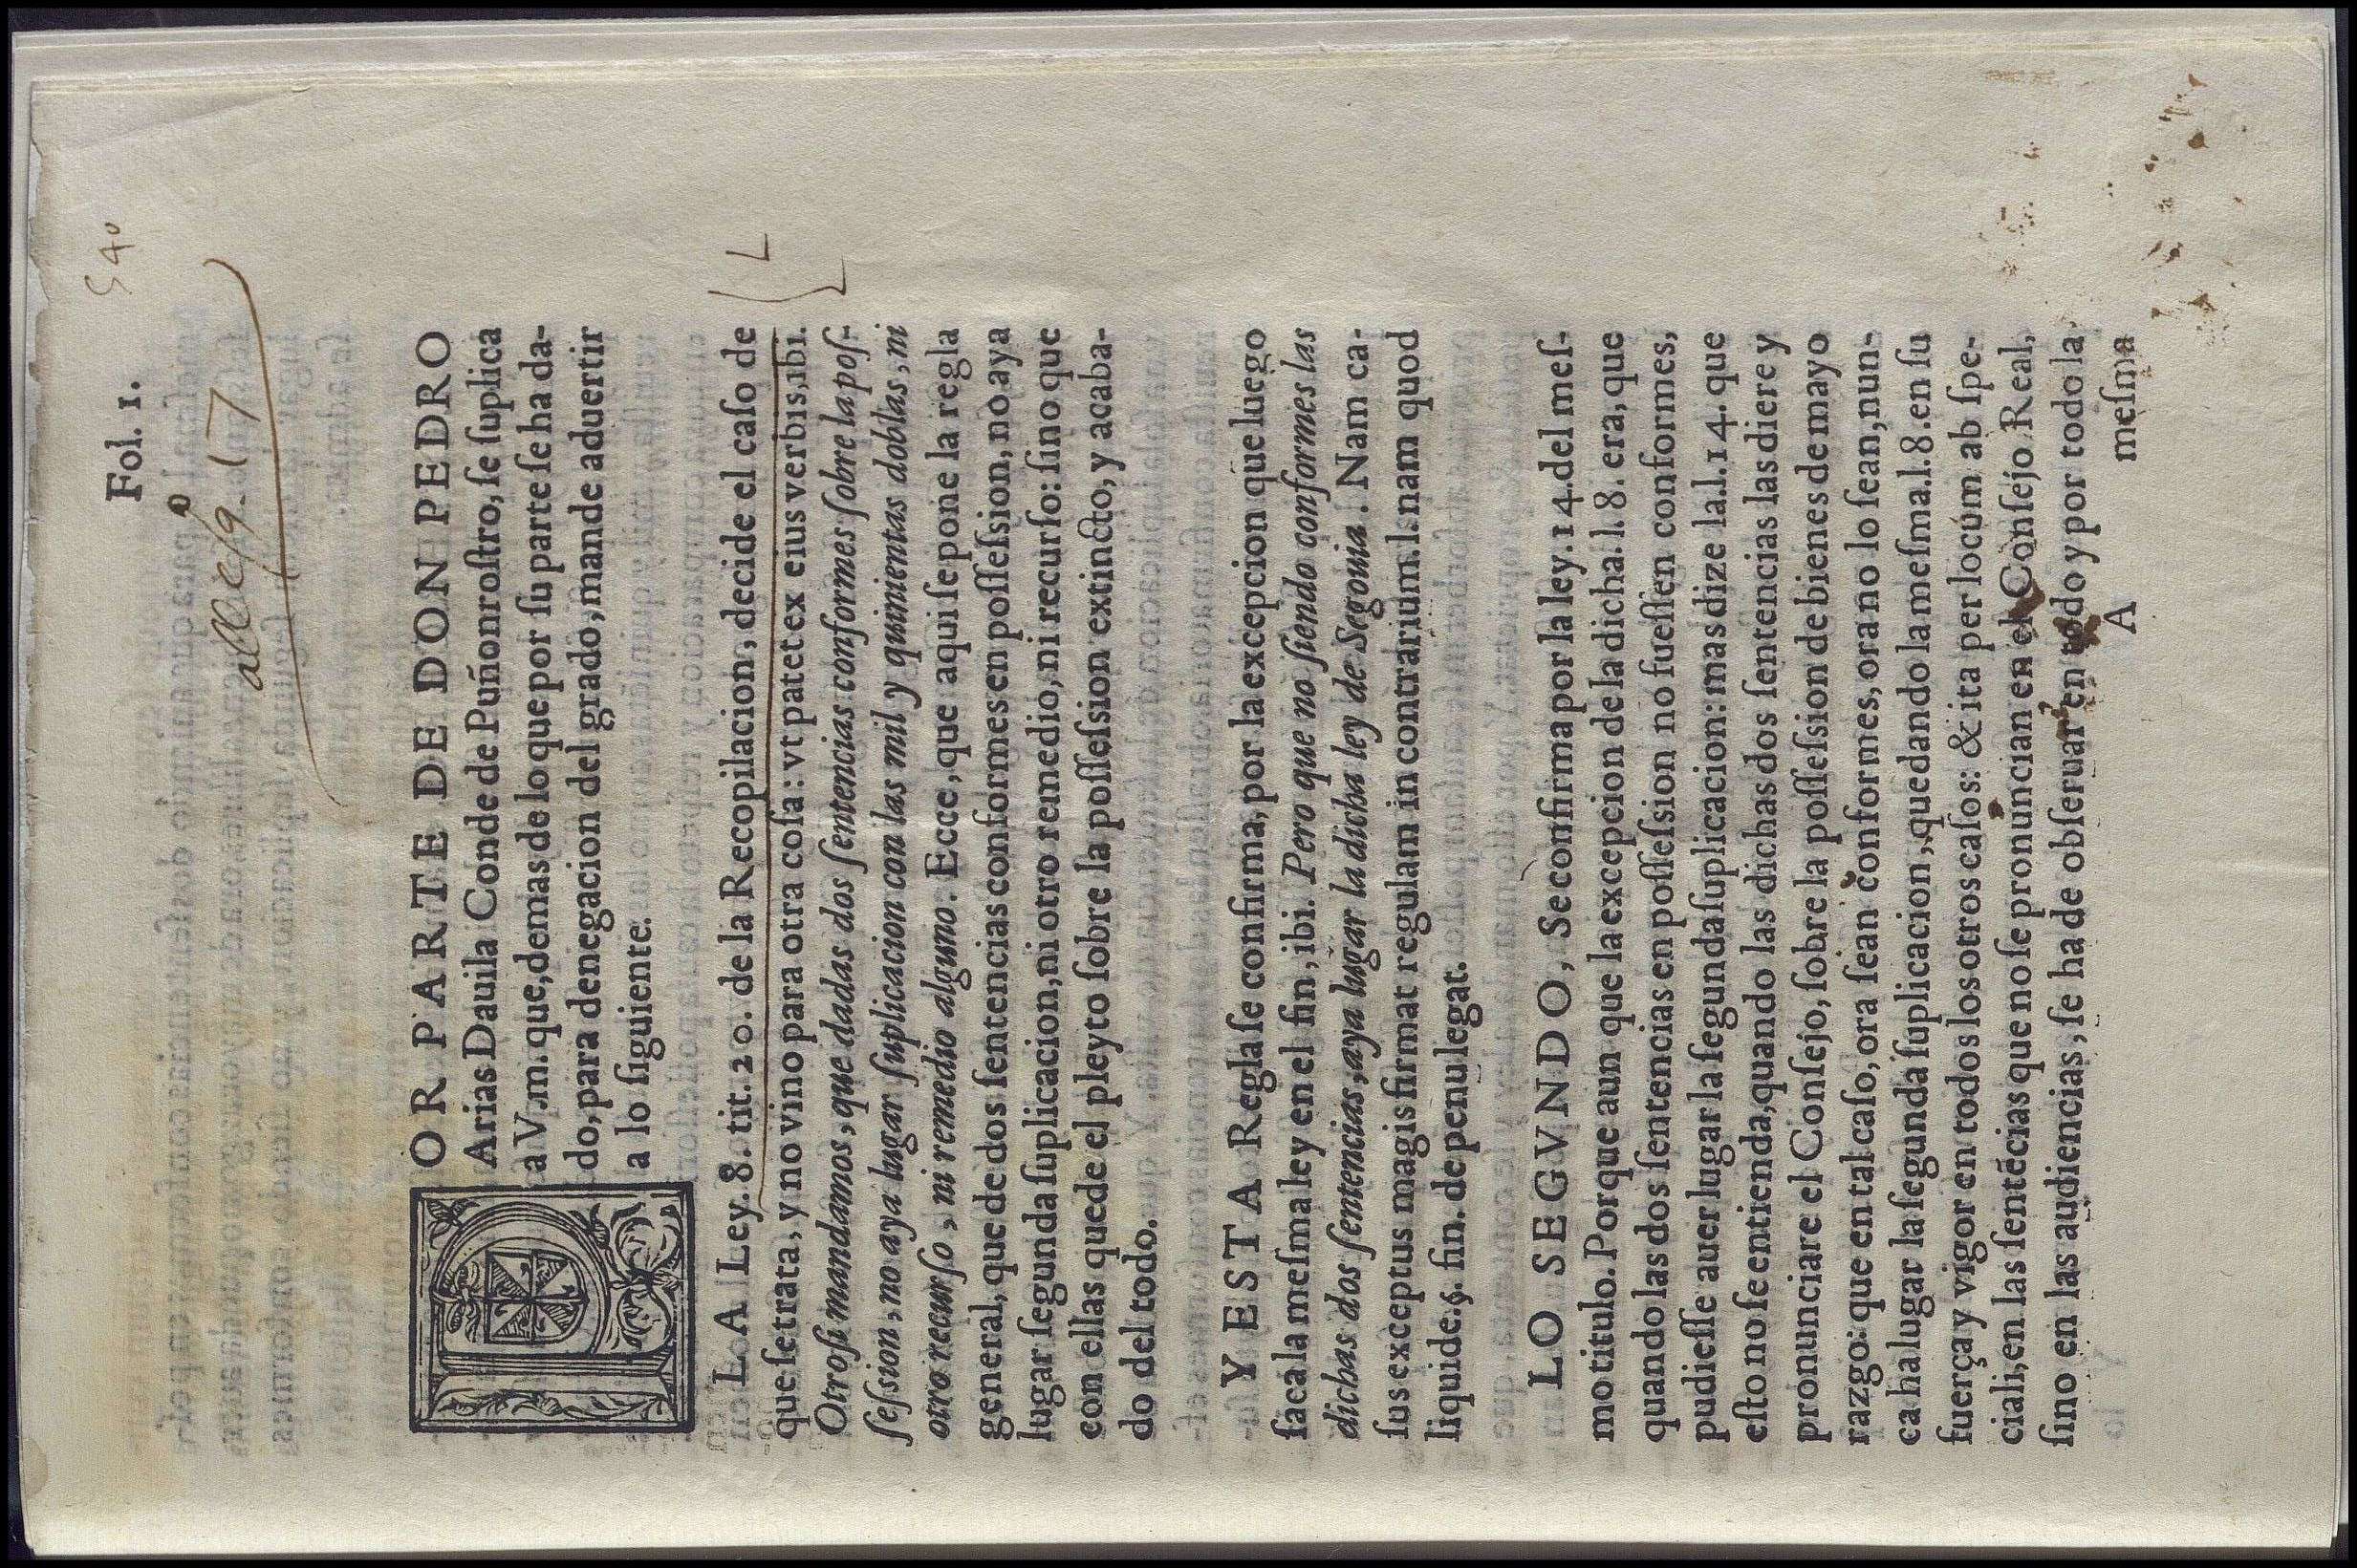 Fol. 1.
540
POR PARTE DE DON PEDRO
Arias Dauila Conde de Puñonroſtro, ſe ſuplica
a V.m. que, demas de lo que por ſu parte ſe ha da-
do, para denegacion del grado, mande aduertir
a lo ſiguiente.
LA Ley. 8. tit. 20. de la Recopilacion, decide el caſo de
que ſe trata, y no vino para otra coſa: vt patet ex eius verbis, ibi.
Otroſi mandamos, que dadas dos ſentencias conformes ſobre la poſ-
ſeſsion, no aya lugar ſuplicacion con las mil y quinientas doblas, ni
otro recurſo, ni remedio alguno. Ecce, que aqui ſe pone la regla
general, que de dos ſentencias conformes en poſſeſsion, no aya
lugar ſegunda ſuplicacion, ni otro remedio, ni recurſo: ſino que
con ellas quede el pleyto ſobre la poſſeſsion extincto, y acaba-
do del todo.
Y ESTA Regla ſe confirma, por la excepcion que luego
ſaca la meſma ley en el fin, ibi. Pero que no ſiendo conformes las
dichas dos ſentencias, aya lugar la dicha ley de Segouia. Nam ca-
ſus exceptus magis firmat regulam in contrarium. l. nam quod
liquide. §. fin. de penu legat.
LO SEGVNDO, Se confirma por la ley. 14. del meſ-
mo titulo. Porque aun que la excepcion de la dicha. l. 8. era, que
quando las dos ſentencias en poſſeſsion no fueſſen conformes,
pudieſſe auer lugar la ſegunda ſuplicacion: mas dize la. l. 14. que
eſto no ſe entienda, quando las dichas dos ſentencias las diere y
pronunciare el Conſejo, ſobre la poſſeſsion de bienes de mayo
razgo: que en tal caſo, ora ſean conformes, ora no lo ſean, nun-
ca ha lugar la ſegunda ſuplicacion, quedando la meſma. l. 8. en ſu
fuerça y vigor en todos los otros caſos: & ita per locum ab ſpe-
ciali, en las ſentẽcias que no ſe pronuncian en el Conſejo Real,
ſino en las audiencias, ſe ha de obſeruar en todo y por todo la
A meſma